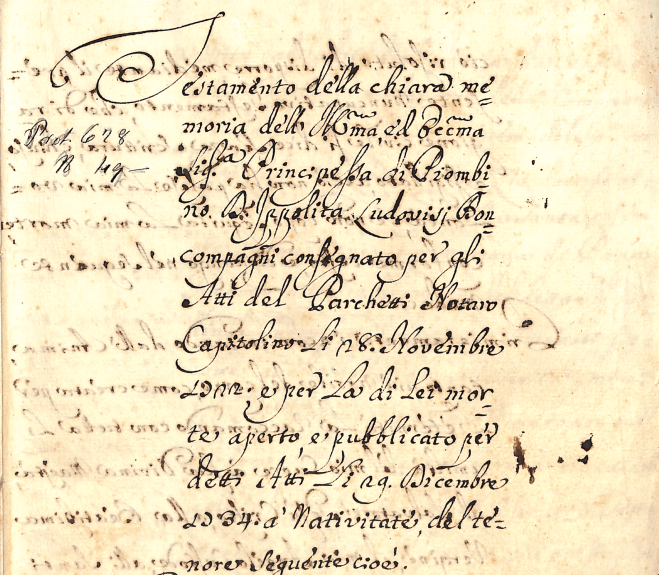 Testamento della chiara me=
moria dell' Ill:ma ed Ecc:ma
Sig:ra Principessa di Piombi=
no D. Ippolita Ludovisj Bon=
compagni consegnato per gli
Atti del Parchetti Notaro
Prot 628
N 49
Capitolino Li 28: Novembre
1722, e per La di Lei mor=
te aperto e pubblicato per
detti Atti Li 29. Dicembre
1734: a Nativitate, del te=
nore seguente cioè.